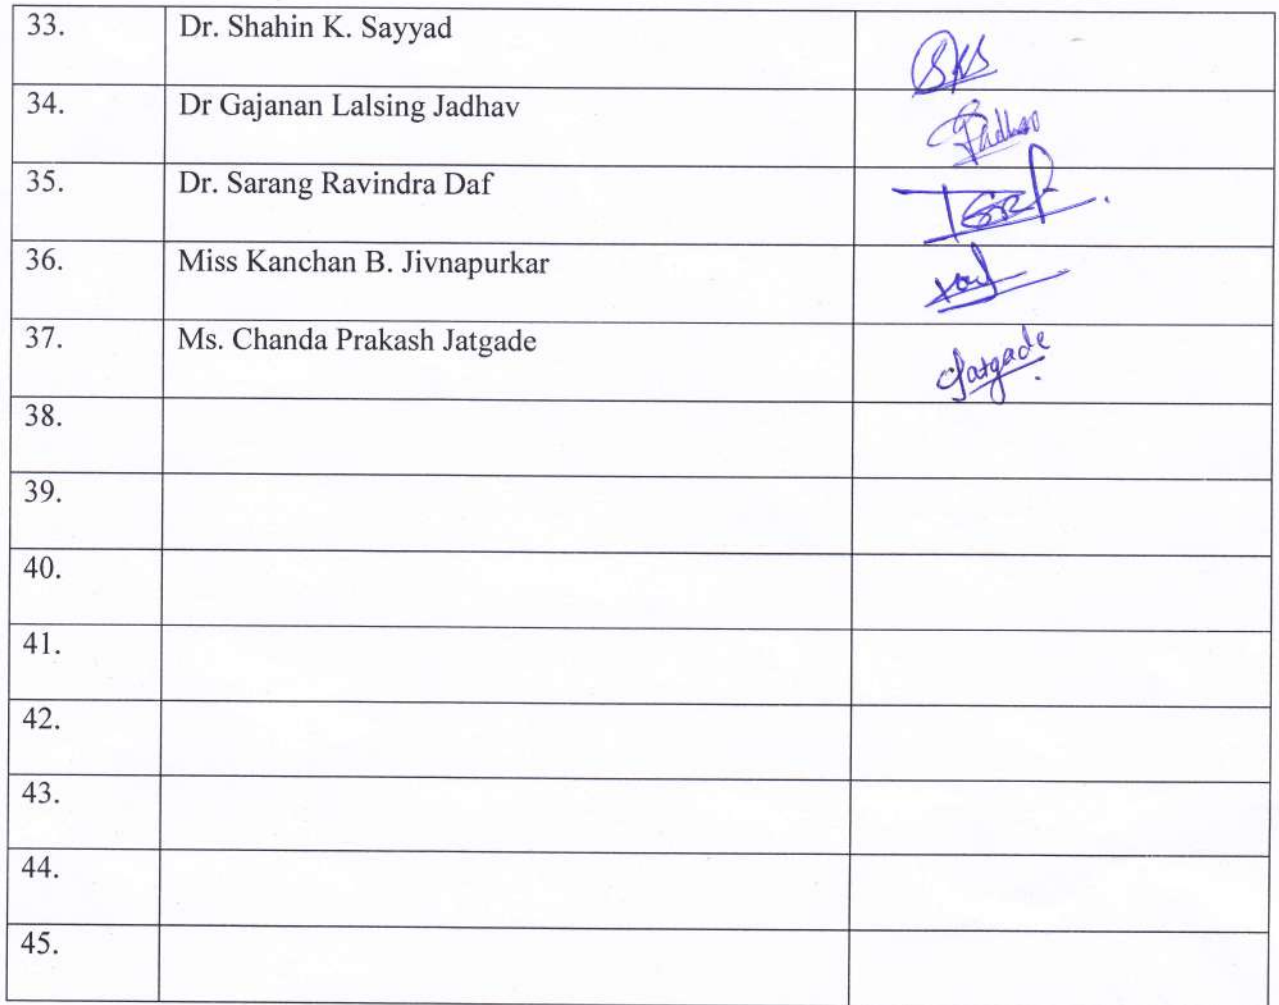 33. Dr. Shahin K. Sayyad SKS
34. Dr Gajanan Lalsing Jadhav Jadhav
35. Dr. Sarang Ravindra Daf
36. Miss Kanchan B. Jivnapurkar
37. Ms. Chanda Prakash Jatgade Jatgade
38.
39.
40.
41.
42.
43.
44.
45.